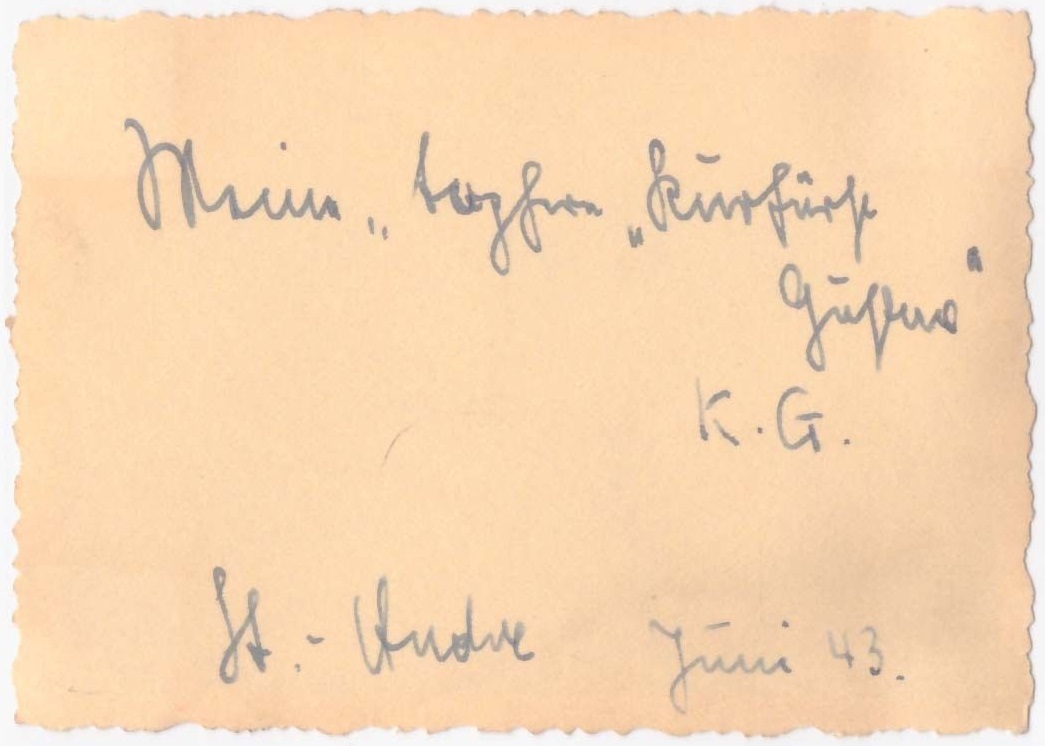 Meine „ tapfere „Kurfürst
Gustav"
K. G.
St.- Andre Juni 43.